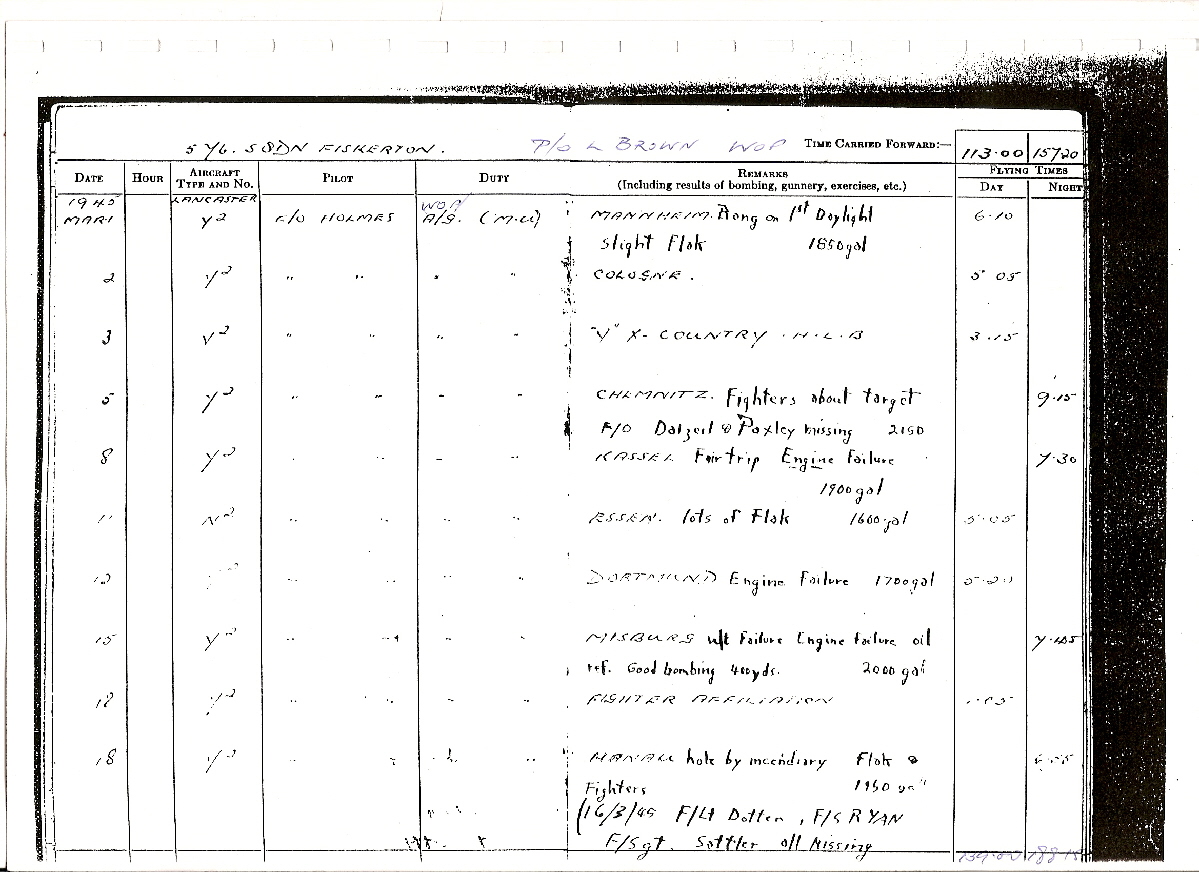 576. SQDN FISKERTON. P/O L BROWN WOP TIME CARRIED FORWARD:— 113.00 157.20
DATE HOUR AIRCRAFT TYPE AND No. PILOT DUTY REMARKS (Including results of bombing, gunnery, exercises, etc.) FLYING TIMES DAY NIGHT
1945 LANCASTER WOP/
MAR 1 Y2 F/O HOLMES A/G. (M.U) MANNHEIM. Bang on 1st Daylight 6.10
slight Flak 1850gal
2 Y2 " " " " COLOGNE. 5.05
3 V2 " " " " "V" X-COUNTRY. H.L.B 3.15
5 Y2 " " " " CHEMNITZ. Fighters about target 9.15
F/O Dalzeil & Paxley missing 2150
8 Y2 " " " " KASSEL Fair trip Engine Failure 7.30
1900gal
11 N2 " " " " ESSEN. lots of Flak 1600gal 5.05
12 " " " " DORTMUND Engine Failure 1700gal 5.20
15 Y2 " " " " MISBURG w/t Failure Engine failure oil 7.45
ref. Good bombing 400yds. 2000gal
Y2 " " " " FIGHTER AFFILIATION
18 " " " HANAU hole by incendiary Flak &
Fighters 1950gal
(16/3/45 F/Lt Dotten, F/S RYAN
F/Sgt. Sattler all Missing
188.15